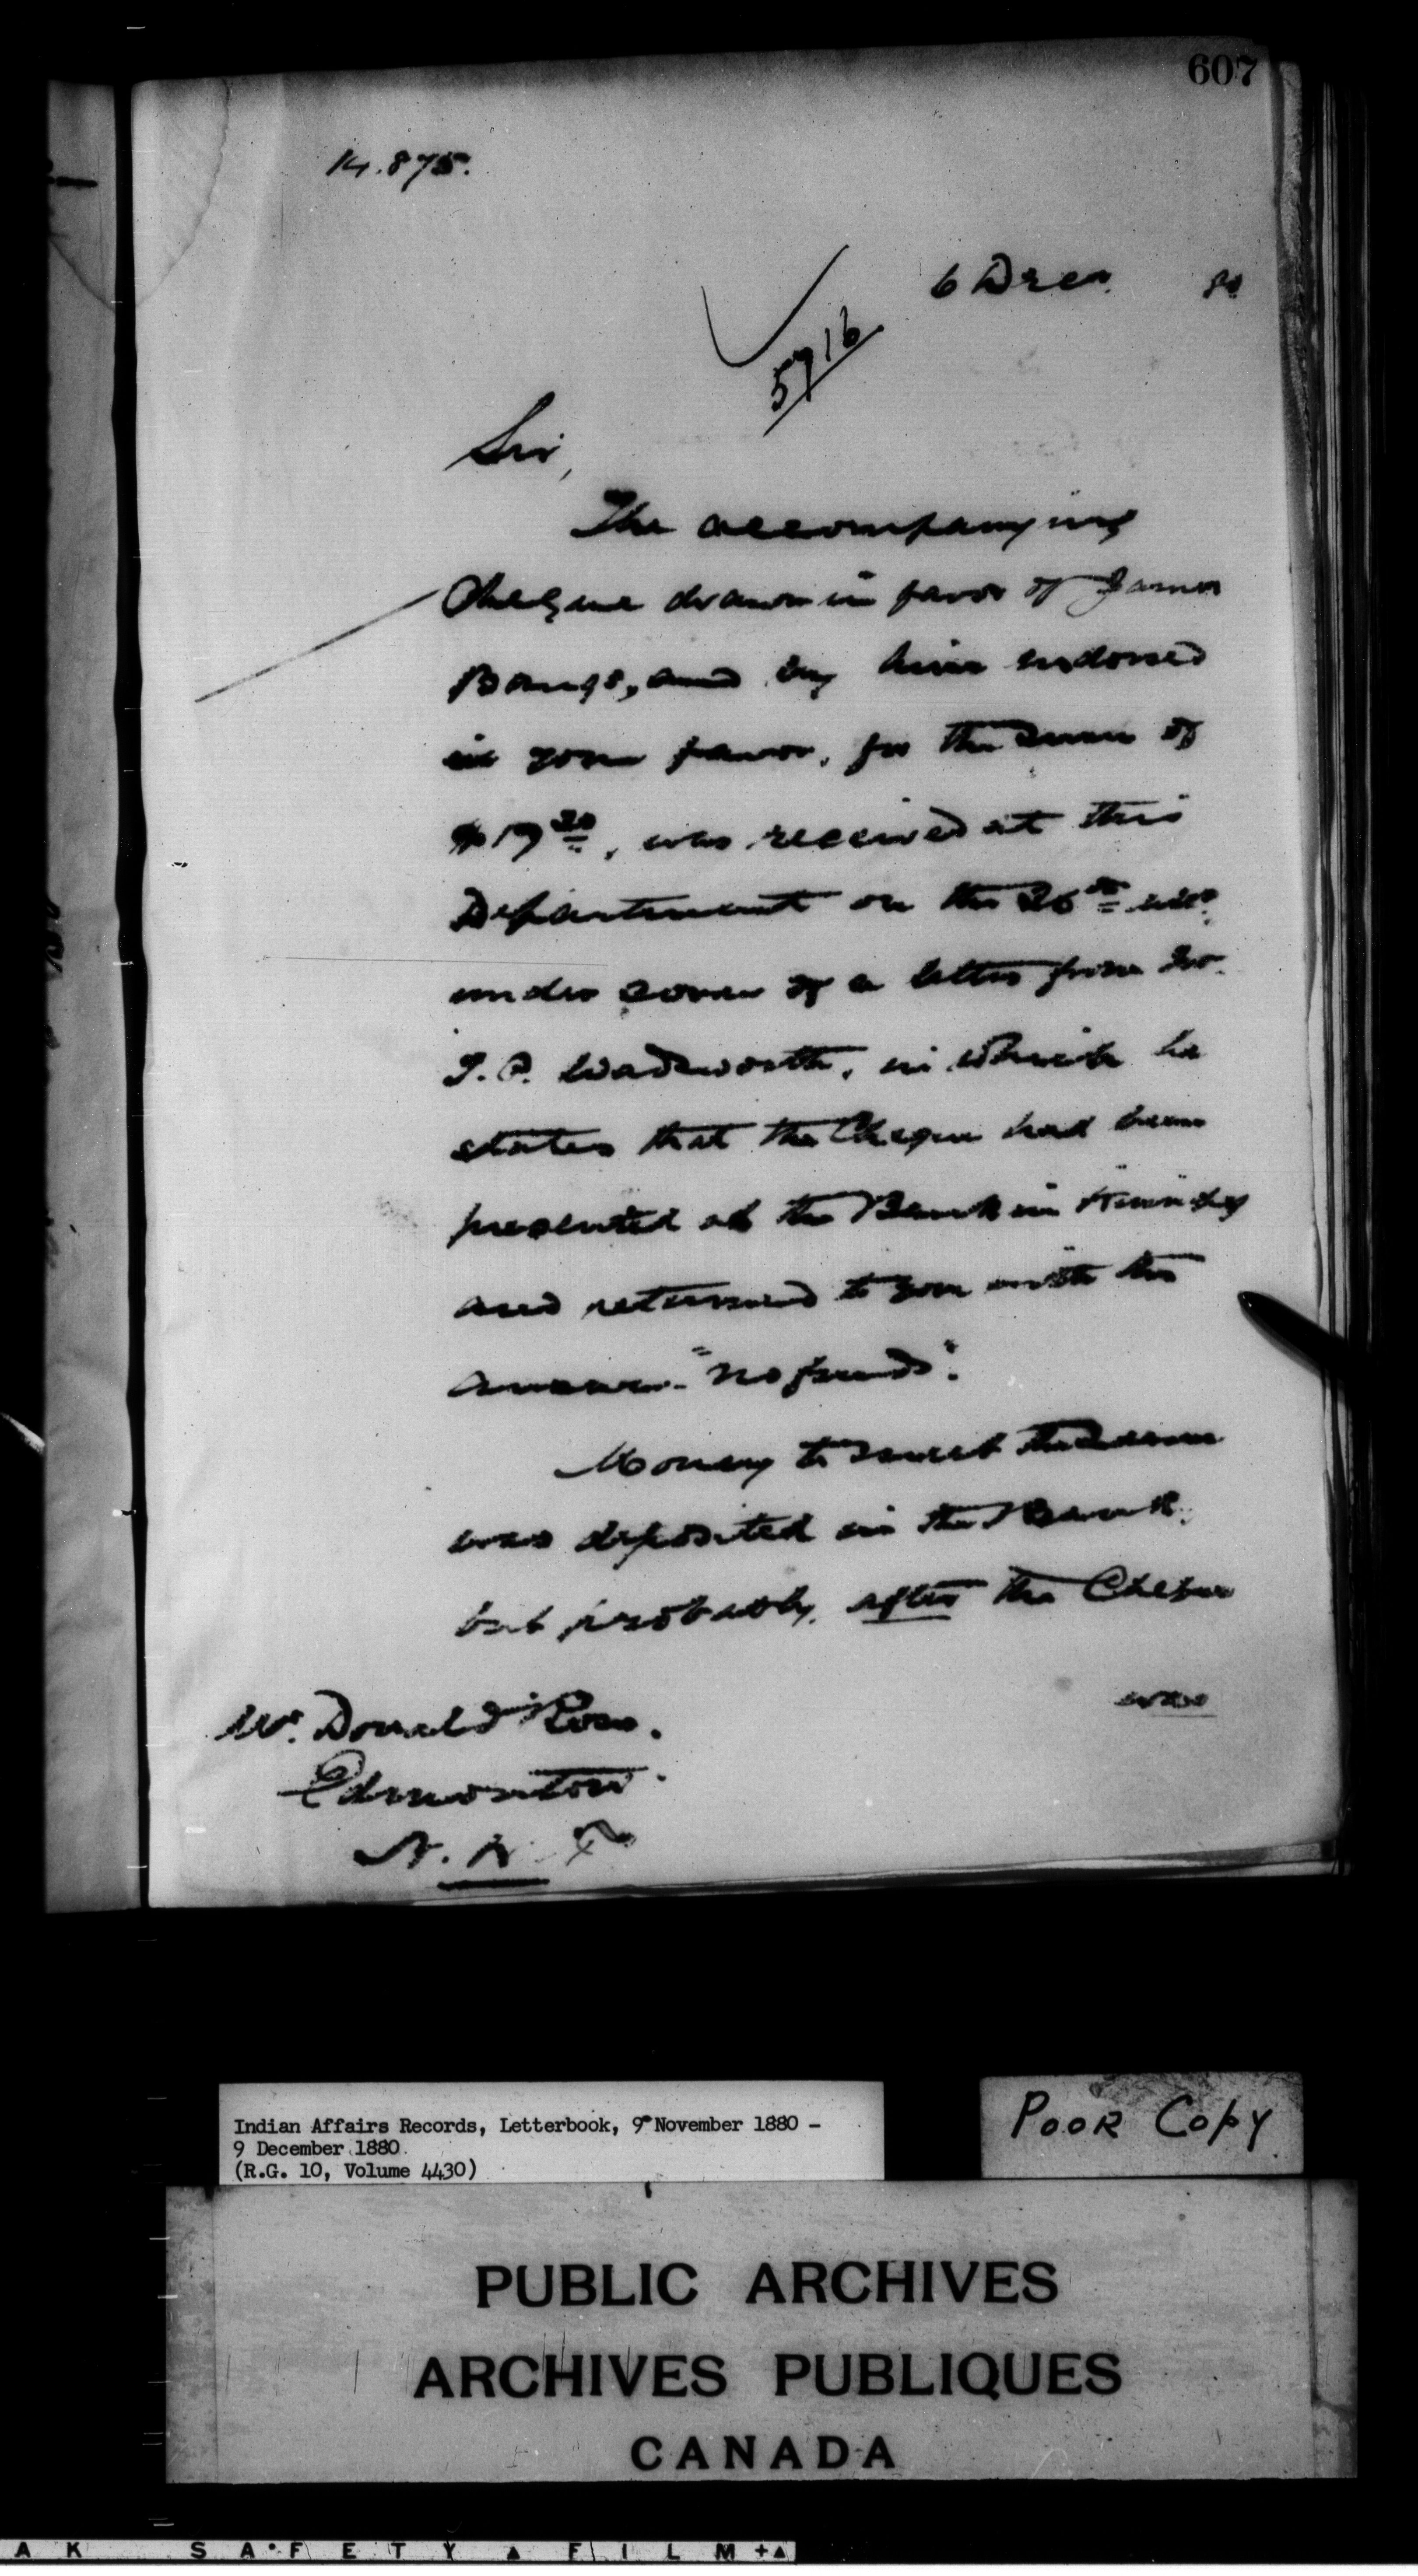 607
14.875.
6 Decr. 80
5716
Sir,
The accompanying
Cheque drawn in favor of James
Bangs, and by him endorsed
in your favor, for the sum of
$17 20, was received at this
Department on the 26th ulto.
under cover of a letter from Mr.
T. P. Wadsworth, in which he
states that the Cheque had been
presented at the Bank in Winnipeg
and returned to you with the
answer "no funds".
Money to meet the same
was deposited in the Bank,
but probably after the Cheque
was
Mr. Donald Ross.
Edmonton.
N. W. T.
Indian Affairs Records, Letterbook, 9 November 1880 -
9 December 1880.
(R.G. 10, Volume 4430)
POOR COPY
PUBLIC ARCHIVES
ARCHIVES PUBLIQUES
CANADA
A K SAFETY ▲ FILM +▲